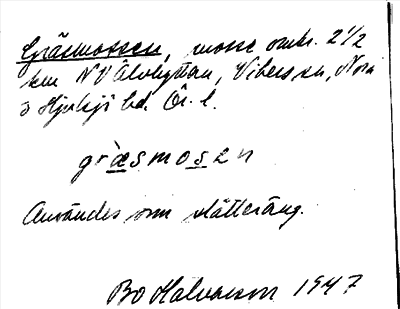 Gräsmossen, mosse omkr. 2 1/2
km NV Älvhyttan, Vikers sn, Nora
o Hjulsjö bd. Ör. l.
gràsmosen
Användes som slåtteräng.
Bo Halvarson 1947